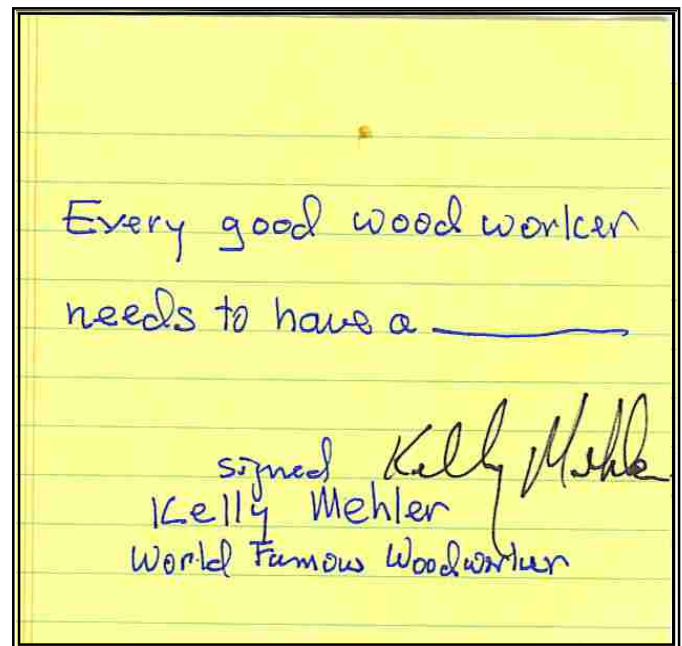 Every good wood worker
needs to have a ________
signed Kelly Mehler
Kelly Mehler
World Famous Woodworker